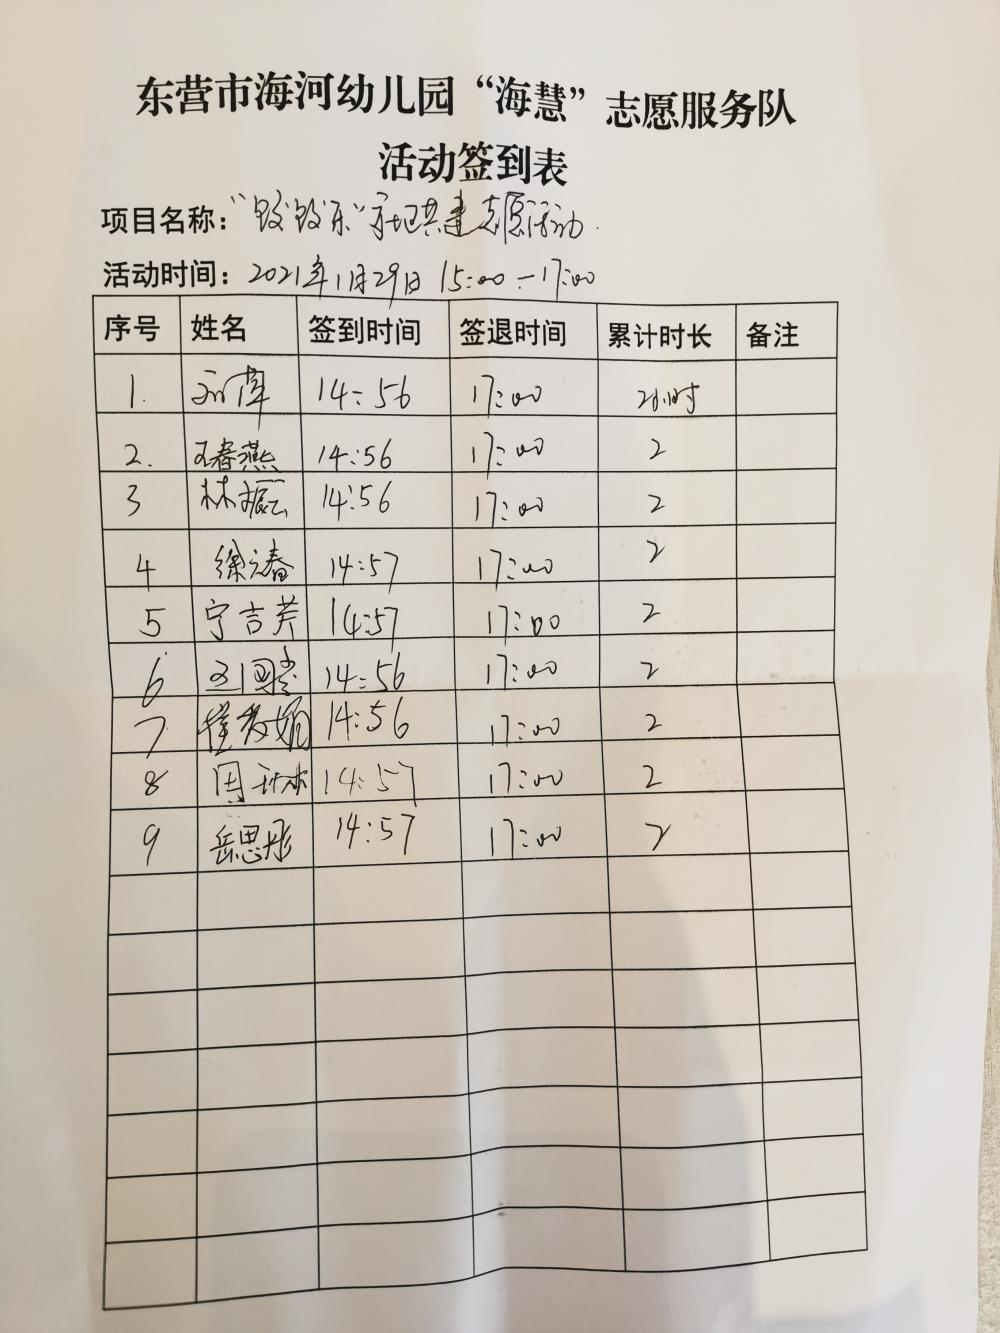 东营市海河幼儿园“海慧”志愿服务队
活动签到表
项目名称:“饺饺乐”家社共建志愿活动.
活动时间: 2021年1月29日 15:00-17:00
序号 姓名 签到时间 签退时间 累计时长 备注
1. 刘萍 14:56 17:00 2小时
2. 王春燕 14:56 17:00 2
3 林振云 14:56 17:00 2
4 徐元春 14:57 17:00 2
5 宁吉芳 14:57 17:00 2
6 14:56 17:00 2
7 14:56 17:00 2
8 周 14:57 17:00 2
9 岳思彤 14:57 17:00 2